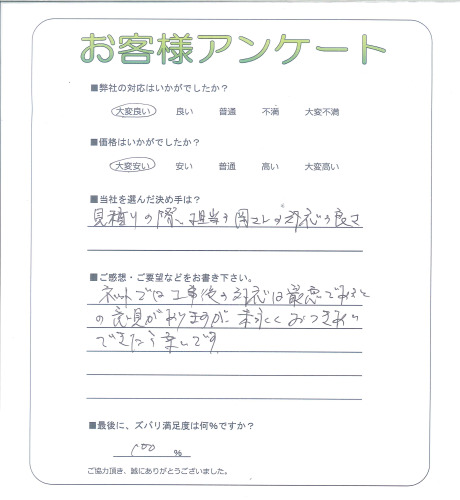 お客様アンケート
■弊社の対応はいかがでしたか？
大変良い 良い 普通 不満 大変不満
■価格はいかがでしたか？
大変安い 安い 普通 高い 大変高い
■当社を選んだ決め手は？
見積りの際、担当者 の対応の良さ
■ご感想・ご要望などをお書き下さい。
ネットでは工事後の対応は最悪であると
の意見がありますが、末永くおつきあい
できたら幸いです
■最後に、ズバリ満足度は何％ですか？
100 ％
ご協力頂き、誠にありがとうございました。